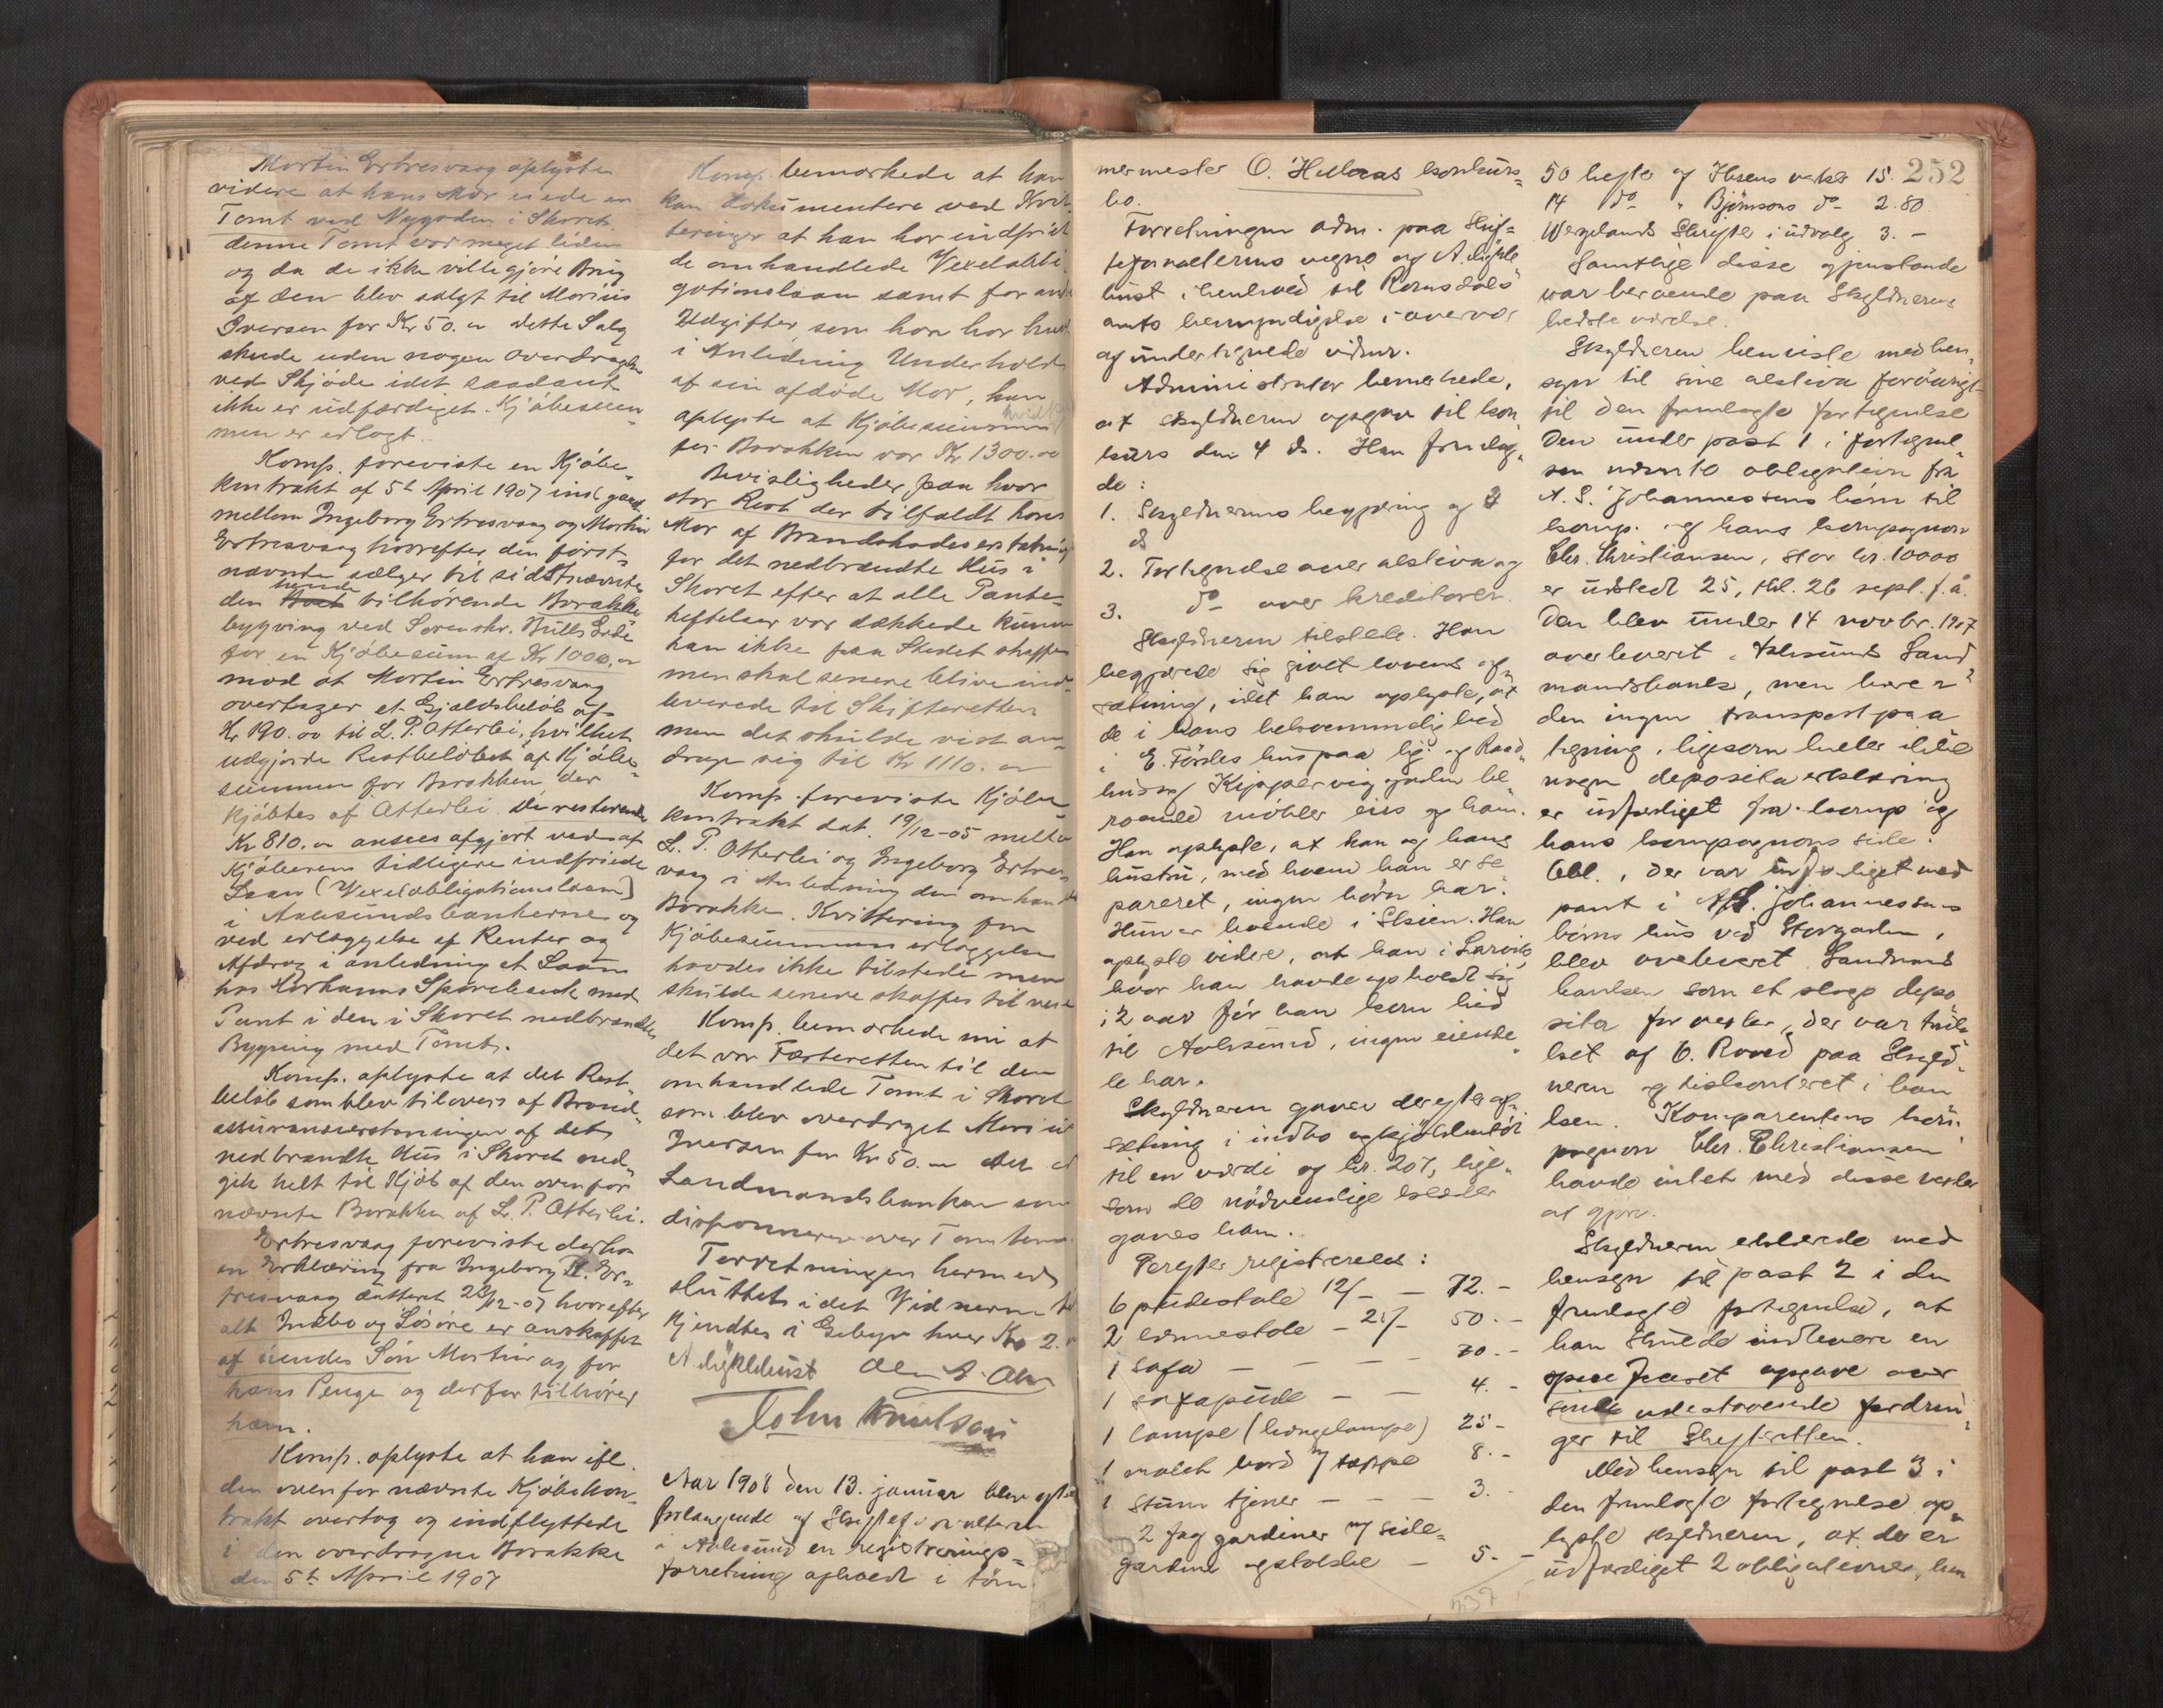 Martin Ertresvaag oplyste
videre at hans Mor eiede en
Tomt ved Nygaden i Skaret.
denne Tomt var meget liden
og da de ikke ville gjøre Brug
af den blev solgt til Marius
Iversen for Kr 50.00 dette Salg
skede uden nogen Overdragelse
ved Skjøde idet saadant
ikke er udfærdiget. Kjøbesum=
men er erlagt.
Komp. foreviste en Kjøbe=
kontrakt af 5te April 1907 indgaaet
mellem Ingeborg Ertresvaag og Martin
Ertresvaag hvorefter den først=
nævnte sælger til sidstnævnte
den hende tilhørende Barakke
bygning ved Sorenskr. Bulls Gade
for en Kjøbesum af Kr 1000.00
mod at Martin Ertresvaag
overtager et Gjældsbeløb af
Kr 190.00 til L. P. Otterlei, hvilket
udgjorde Restbeløbet af Kjøbe=
summen for Barakken der
kjøbtes af Otterlei. De resterende
Kr 810.00 ansees afgjort ved af
Kjøberen tidligere indfriede
Laan (Vexelobligationslaan)
i Aalesundsbankerne og
ved erlæggelse af Renter og
Afdrag i anledning et Laan
hos Harhams Sparebank med
Pant i den i Skaret nedbrændte
Bygning med Tomt.
Komp. oplyste at det Rest=
beløb som blev tilovers af Brand=
assuranceerstatningen af det
nedbrændte Hus i Skaret med=
gik helt til Kjøb af den ovenfor
nævnte Barakke af L. P. Otterlei.
Ertresvaag foreviste derhos
en Erklæring fra Ingeborg Er=
tresvaag datteret 28/12-07 hvorefter
alt Indbo og Løsøre er anskaffet
af hendes Søn Martin og for
hans Penge og derfor tilhører
ham.
Komp. oplyste at han ifl.
den ovenfor nævnte Kjøbekon=
trakt overtog og indflyttede
i den overdragne Barakke
den 5te April 1907
Komp. bemærkede at han
kan dokumentere ved Kvit=
teringer at han har indfriet
de omhandlede Vexelobli=
gationslaan samt for andre
Udgifter som han har havt
i Anledning Underhold
af sin afdøde Mor, han
oplyste at Kjøbesummen
for Barakken var Kr 1300.00
Bevisligheder paa hvor
stor Rest der tilfaldt hans
Mor af Brandskadeerstatning
for det nedbrændte Hus i
Skaret efter at alle Pante=
heftelser var dækkede kunde
han ikke paa Stedet skaffe
men skal senere blive ind=
leverede til Skifteretten
men det skulde vist an=
drage sig til Kr 1110.00
Komp. foreviste Kjøbe
kontrakt dat. 19/12-05 mellem
L. P. Otterlei og Ingeborg Ertres
vaag i Anledning den omhandlede
Barakke. Kvittering for
Kjøbesummens erlæggelse
havdes ikke tilstede men
skulde senere skaffes tilveie
Komp. bemærkede nu at
det var Festeretten til den
omhandlede Tomt i Skaret
som blev overdraget Marius
Iversen for Kr 50.00 det er
Landmandsbanken som
disponerer over Tomten.
Forretningen hermed
sluttet, idet Vidnerne til
kjendtes i Gebyr hver Kr 2.00
A. Ligaldhust Ole A. Olsen
John Knutson
Aar 1908 den 13. januar blev efter
forlangende af Skifteforvalteren
i Aalesund en registrerings=
forretning afholdt i tøm=
mermester O. Hellaas konkurs=
bo.
Forretningen adm. paa Skif=
teforvalterens vegne af A. Ligald
hust i henhold til Romsdals
amts bemyndigelse i overvær
af undertegnede vidner.
Administrator bemerkede,
at skyldneren opgav til kon
kurs den 4 ds. Han fremlag=
de:
1. Skyldnerens begjæring af 4
ds
2. Fortegnelse over aktiva og
3. do over kreditorer.
Skyldneren tilstede. Han
begjærede sig givet lovens af=
sætning, idet han oplyste, at
de i hans bekvemmelighed
i E. Fördes hus paa hj. af Raad=
hus og Kipperviggaden be=
roende möbler eies af ham.
Han oplyste, at han og hans
hustru, med hvem han er se
pareret, ingen börn har.
Hun er boende i Skien. Han
oplyste videre, at han i Larvik,
hvor han havde opholdt sig
i 2 aar för han kom hid
til Aalesund, ingen eiende=
le har.
Skyldneren gaves derefter af=
sætning i indbo og kjökkentöi
til en værdi af kr. 207, lige=
som de nödvendige klæder
gaves ham.
Derefter registreredes:
6 pudestole 12/- — 72.-
2 lænestole — 25/- 50.-
1 sofa — — — 70.-
1 sofapude — — 4.-
1 lampe (hængelampe) 25-
1 malet bord m/ tæppe 8.-
1 stum tjener — — — 3.-
2 fag gardiner m/ side=
gardiner og stokke — 5.-
237
252
50 hefte af Ibsens verker 15.
14 do " Björnsons do 2.80
Wergelands Skrifter i udvalg 3.-
Samtlige disse gjenstande
var beroende paa Skyldnerens
bedste værelse.
Skyldneren henviste med hen=
syn til sine aktiva forövrigt
til den fremlagte fortegnelse
Den under post 1 i fortegnel=
sen nævnte obligation fra
A. S. Johannessens börn til
komp. og hans kompagnon
Chr. Christiansen, stor kr. 10000
er udstedt 25, thl. 26 sept. f. å.
Den blev under 14 novbr. 1907
overleveret Aalesunds Land
mandsbank, men bærer
den ingen transportpaa
tegning, ligesom heller ikke
nogen depositaerklæring
er udfærdiget fra komp og
hans kompagnons side.
Obl., der var udfærdiget med
pant i A. S. Johannessens
börns hus ved Storgaden,
blev overleveret Landmands
banken som et slags depo
sita for vexler, der var truk=
ket af O. Roald paa Skyld=
neren og diskonteret i ban
ken. Komparentens kom=
pagnon Chr. Christiansen
havde intet med disse vexler
at gjøre.
Skyldneren erklærede med
hensyn til post 2 i den
fremlagte fortegnelse, at
han skulde indlevere en
specificeret opgave over
sine udestaaende fordrin=
ger til Skifteretten.
Med hensyn til post 3 i
den fremlagte fortegnelse op=
lyste skyldneren, at der er
udfærdiget 2 obligationer, hen